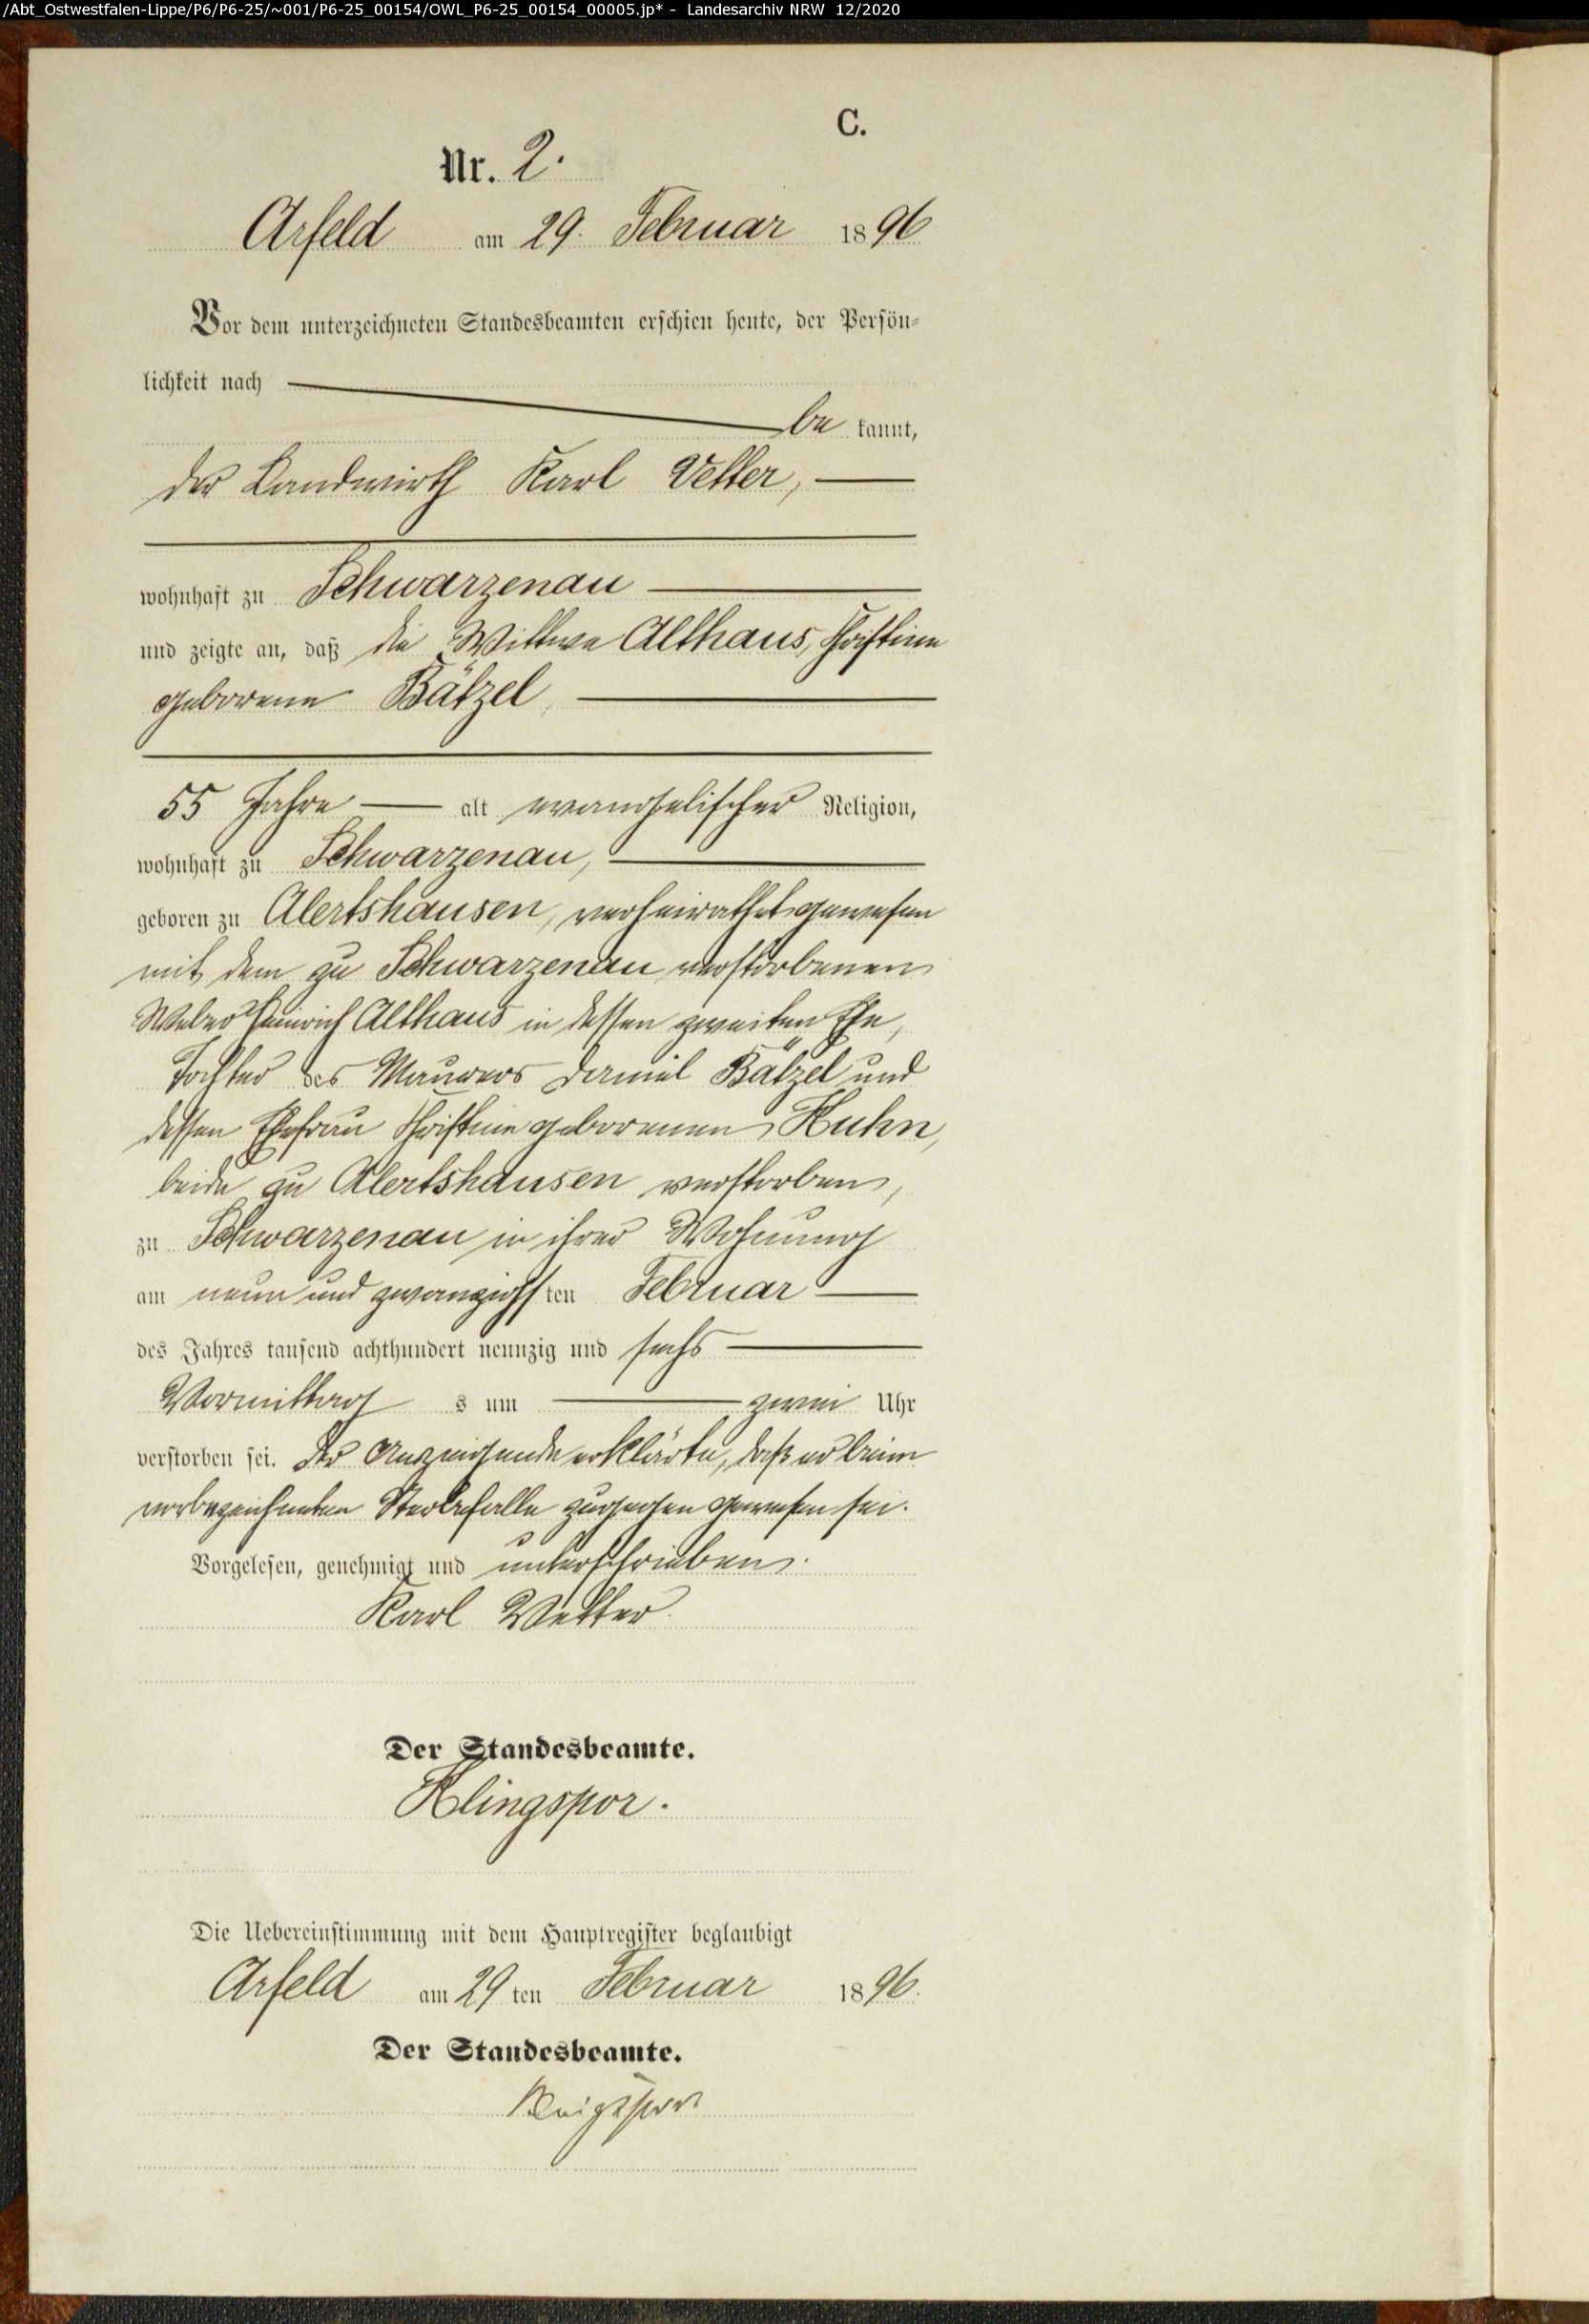 /Abt_Ostwestfalen-Lippe/P6/P6-25/~001/P6-25_00154/OWL_P6-25_00154_00005.jp* - Landesarchiv NRW 12/2020
C.
Nr. 2.
Arfeld am 29. Februar 1896
Vor dem unterzeichneten Standesbeamten erschien heute, der Persön-
lichkeit nach
be kannt,
der Landwirth Karl Vetter,
wohnhaft zu Schwarzenau
und zeigte an, daß die Wittwe Althaus, Christine
geborene Bätzel,
55 Jahre alt evangelischer Religion,
wohnhaft zu Schwarzenau,
geboren zu Alertshausen, verheirathet gewesen
mit dem zu Schwarzenau verstorbenen
Weber Heinrich Althaus in dessen zweiten Ehe,
Tochter des Maurers Daniel Bätzel und
dessen Ehefrau Christine geborenen Kuhn,
beide zu Alertshausen verstorben,
zu Schwarzenau in ihrer Wohnung
am neun und zwanzigsten Februar
des Jahres tausend achthundert neunzig und sechs
Vormittag s um zwei Uhr
verstorben sei. Der Anzeigende erklärte, daß er beim
vorbezeichneten Sterbefalle zugegen gewesen sei.
Vorgelesen, genehmigt und unterschrieben.
Karl Vetter.
Der Standesbeamte.
Klingspor.
Die Uebereinstimmung mit dem Hauptregister beglaubigt
Arfeld am 29 ten Februar 1896.
Der Standesbeamte.
Klingspor